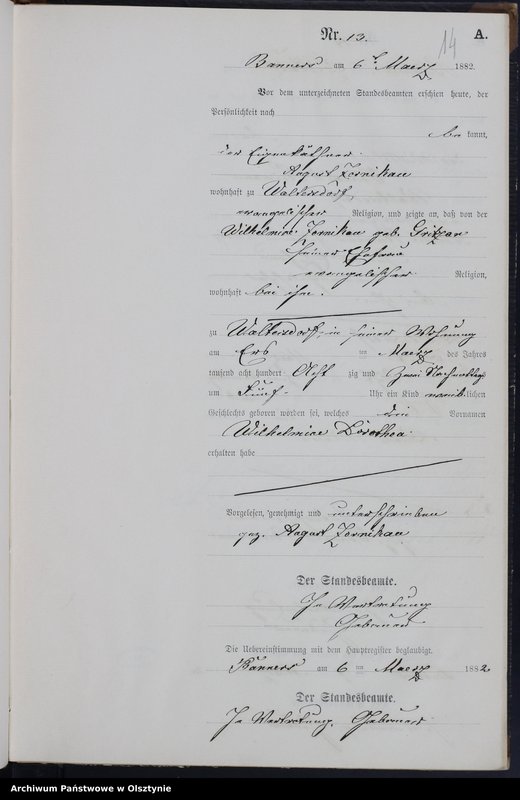 Nr. 13.
14
A.
Banners am 6t März 1882.
Vor dem unterzeichneten Standesbeamten erschien heute, der
Persönlichkeit nach
be kannt,
der Eigenkäthner
August Zornikau
wohnhaft zu Waltersdorf,
evangelischer Religion, und zeigte an, daß von der
Wilhelmine Zornikau geb.
seiner Ehefrau
evangelischer Religion,
wohnhaft bei ihm.
zu Waltersdorf in seiner Wohnung
am ten März des Jahres
tausend acht hundert Acht zig und Zwei Nachmittags
um Fünf Uhr ein Kind weiblichen
Geschlechts geboren worden sei, welches die Vornamen
Wilhelmine Dorothea
erhalten habe
Vorgelesen, genehmigt und unterschrieben
gez. August Zornikau
Der Standesbeamte.
In Vertretung
Gebauer
Die Uebereinstimmung mit dem Hauptregister beglaubigt.
Banners am 6 ten März 1882
Der Standesbeamte.
In Vertretung. Gebauer
Archiwum Państwowe w Olsztynie